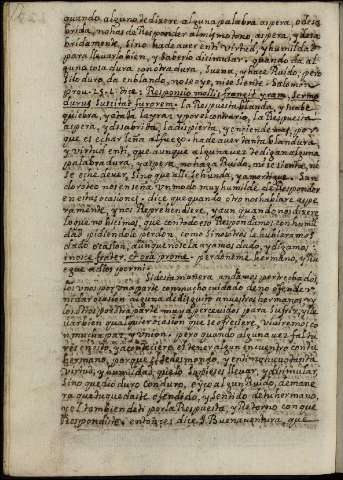 quando alguno te dixere alguna palabra aspera, o desa
brida, no has de Responder al mismo tono, aspera, y desa
bridamente, sino ha de aver en ti virtud, y humildad
para llevarlo bien, y saberlo disimular. quando da al
guna cosa dura con otra dura, suena, y hace Ruido, pero
si lo duro, da en blando, no se oye, ni se siente. Salomon
prou. 15. 1. dice. Responsio mollis frangit iram, sermo
durus suscitat furorem. la Respuesta blanda, y suabe
quiebra, y ataja la yra, y por el contrario, la Respuesta
aspera, y desabrida, la despierta, y enciende mas, por
que es echar leña al fuego. ha de aver tanta blandura
y virtud en ti, que aunque alguna vez te digan alguna
palabra dura, y aspera, no haga Ruido, ni se sienta, ni
se eche de ver, sino que alli se hunda, y amortigue. San
doroteo nos enseña un modo muy humilde de Responder
en estas ocasiones. dice que quando otro nos hablare aspe
ramente, y nos Reprehendiere, y aun quando nos dixere
lo que no hicimos, que con todo eso Respondamos con humil
dad pidiendole perdon, como si nosotros le hubieramos
dado ocasion, aunque no se la ayamos dado, y digamos:
ignosce frater, et ora pro me. perdoneme hermano, y Rue
gue a dios por mi.
Si desta manera andamos
los unos por una parte con mucho cuidado de no ofender
ni dar ocasion alguna de disgusto a nuestros hermanos, y
los otros por otra parte muy apercevidos para sufrir, y lle
var bien qualquier ocasion que se ofreciere, viviremos co
n mucha paz, y union. pero quando alguna vez faltare
en esto, y aconteciere el tener algun encuentro con tu
hermano, porque
virtud, y humildad, que lo supieses llevar, y disimular
sino que dio duro con duro, e hizo algun Ruido, de mane
ra que tu quedaste ofendido, y sentido de tu hermano,
y el tambien de ti por la Respuesta, y Retorno con que
Respondiste. entonces dice S. Buenaventura, que